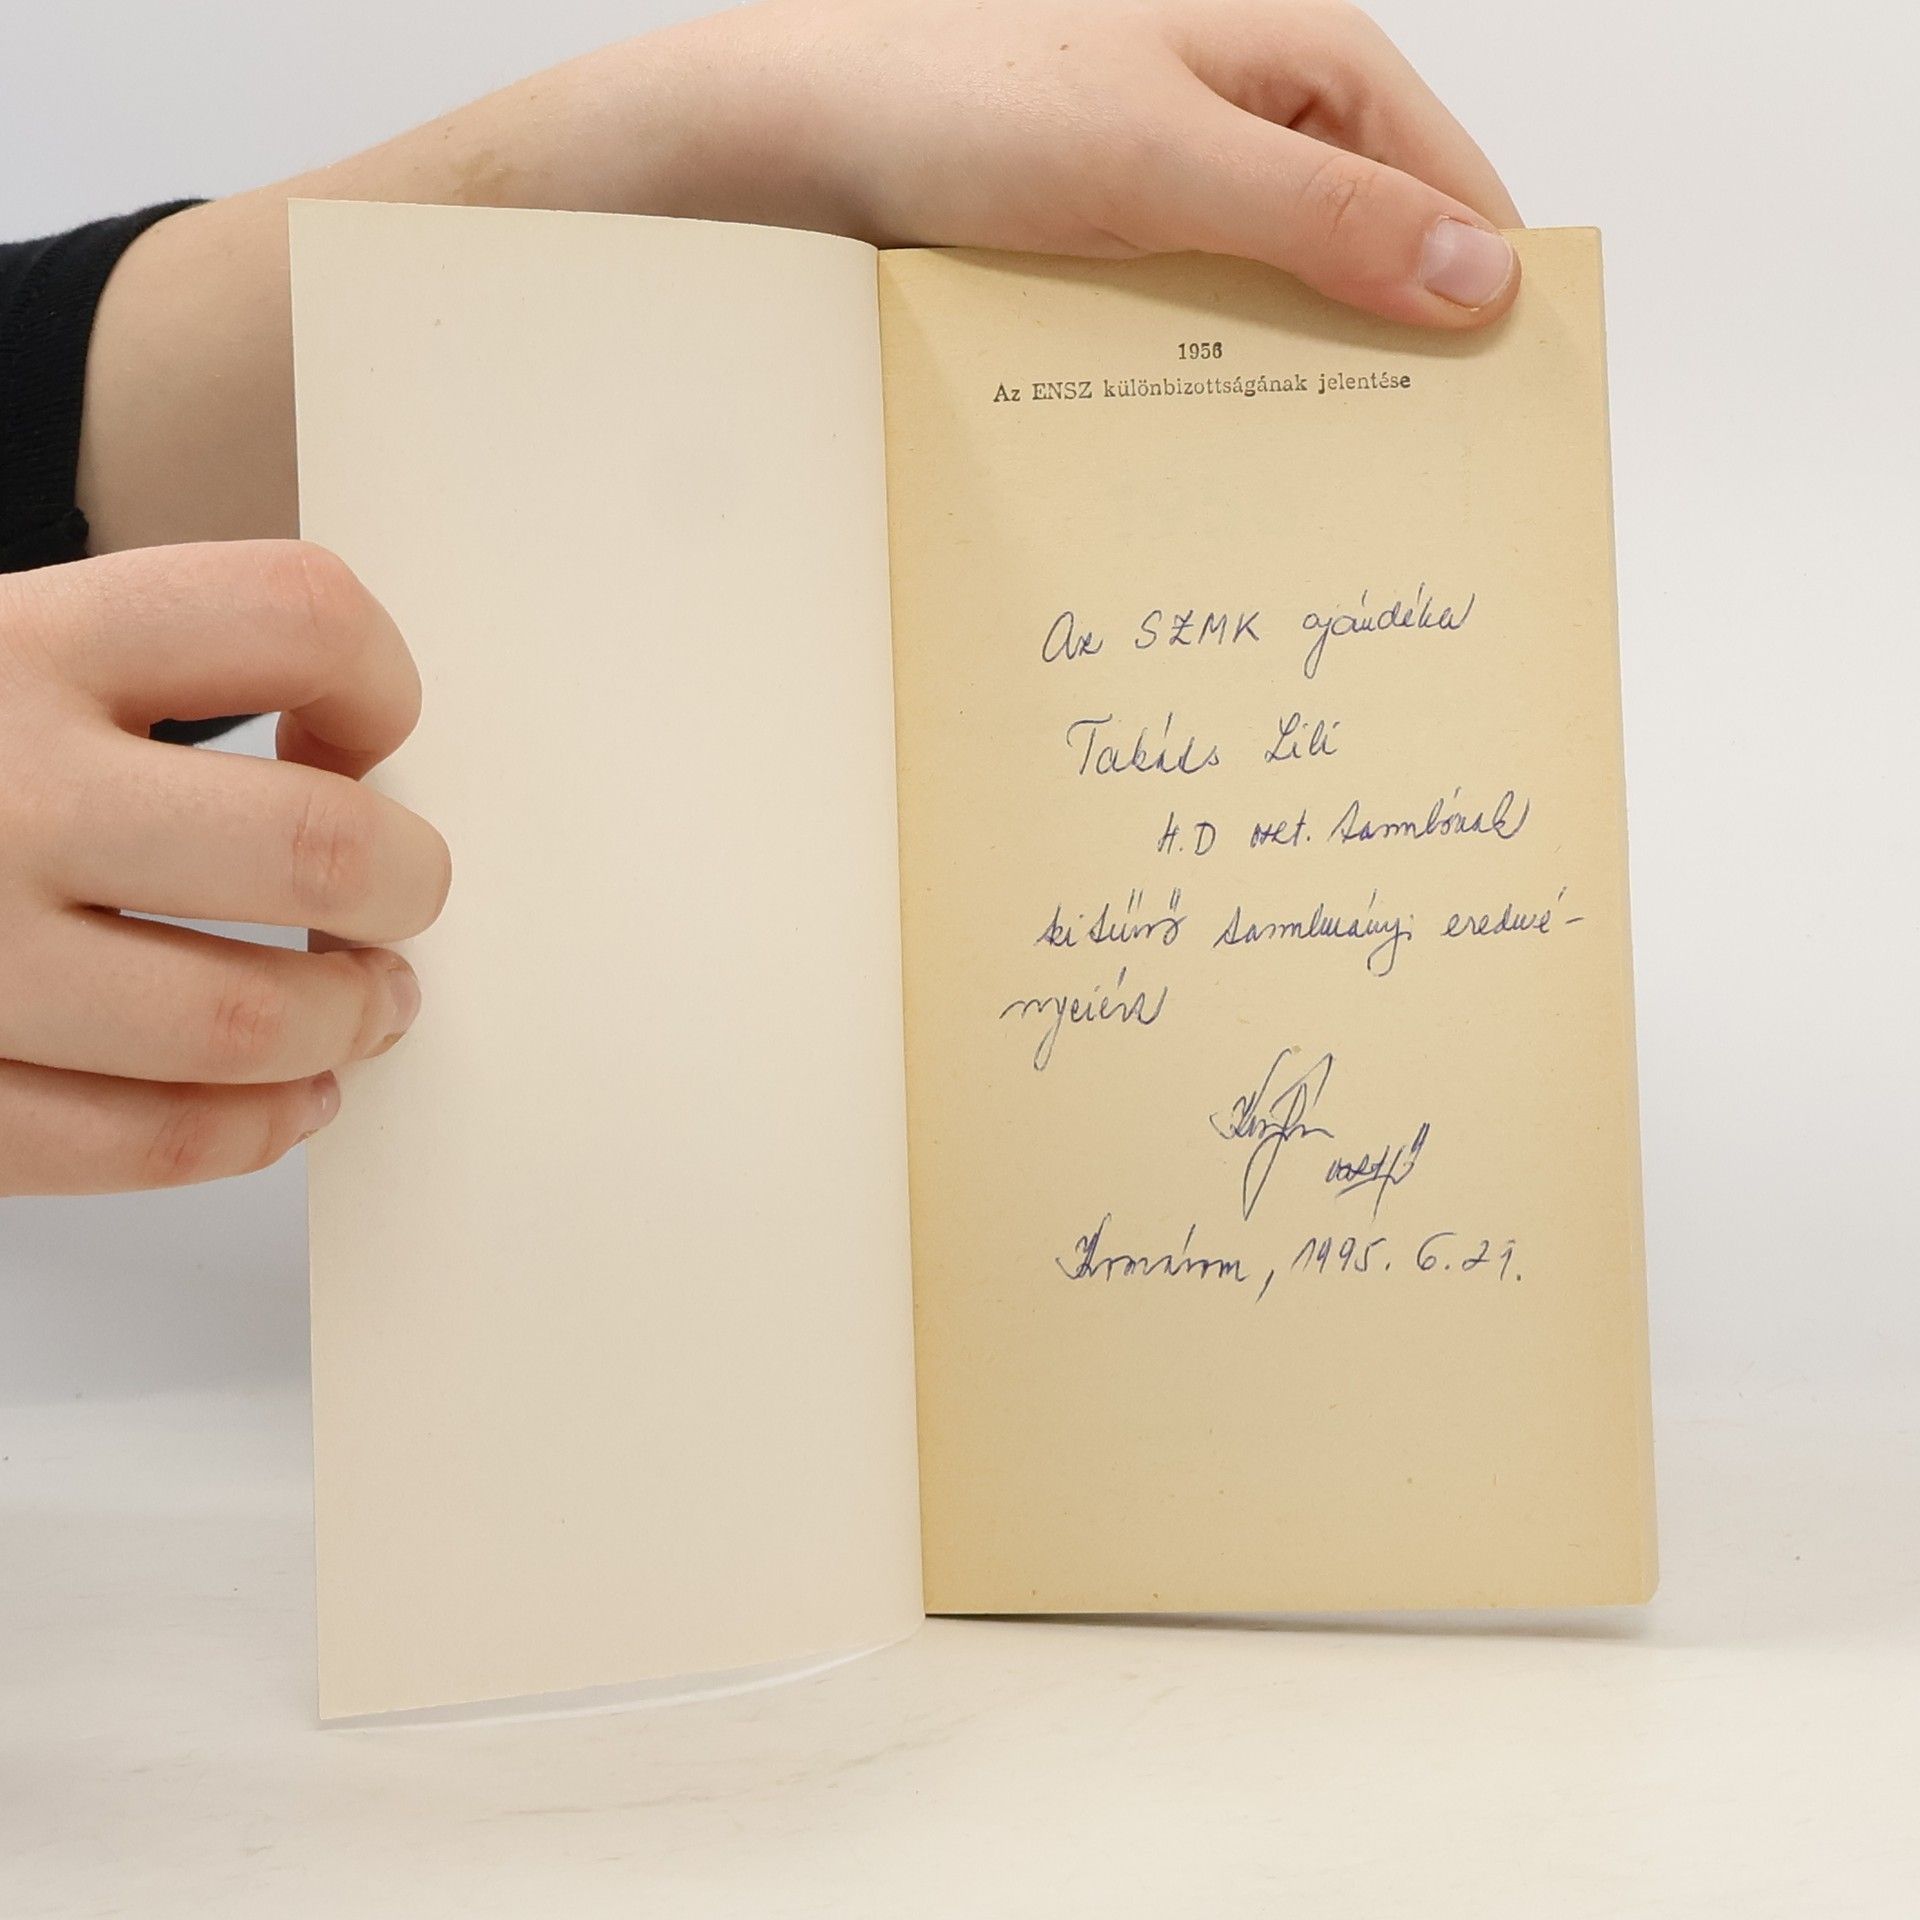 1956
Az ENSZ különbizottságának jelentése
Az SZMK ajándéka
Takács Lili
II.D oszt. tanulónak
kitűnő tanulmányi eredmé-
nyeiért
oszt.fő
Komárom, 1995. 6. 21.